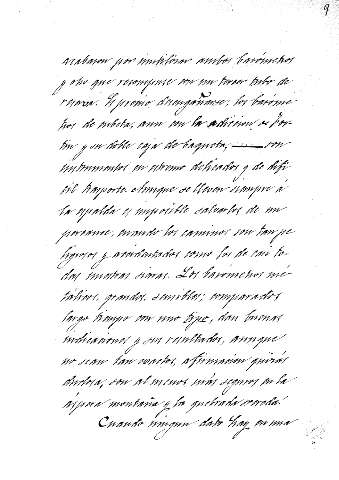 9
acabaron por inutilizar ambos barómetros
y otro que recompuse con un tercer tubo de
reserva. Es preciso desengañarse; los baróme-
tros de cubeta, aun con la adicion de For-
tin y su doble caja de baqueta, —— son
instrumentos en extremo delicados y de difi-
cil trasporte. Aunque se lleven siempre á
la espalda es imposible salvarlos de un
percance, cuando los caminos son tan pe-
ligrosos y accidentados como los de casi to-
das nuestras sierras. Los barometros me-
tálicos, grandes, sensibles, comparados
largo tiempo con uno tipo, dan buenas
indicaciones y sus resultados, aunque
no sean tan exactos, afirmacion quizás
dudosa, son al menos más seguros en la
áspera montaña y la quebrada
Cuando ningun dato hay en una